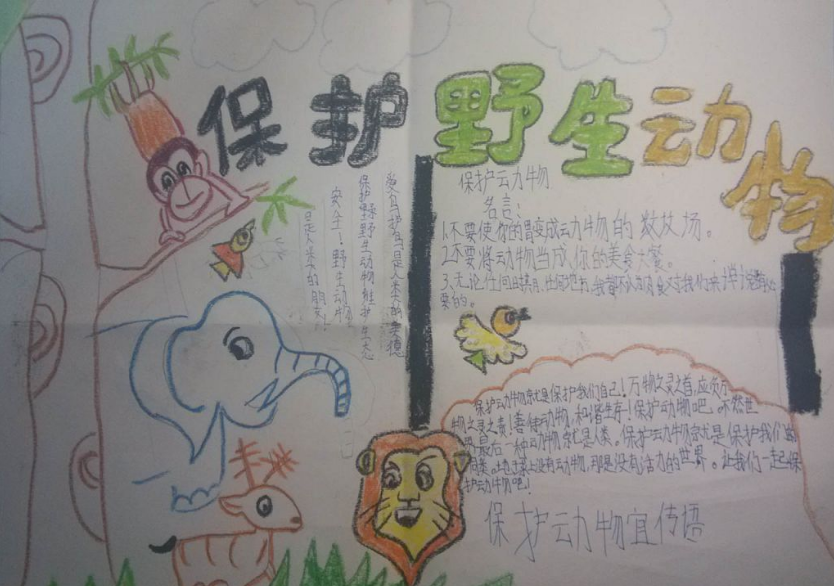 保护野生动物
爱鸟护鸟是人类的美德
保护野野生动物维护生态
安全！野生动物
是人类的朋友
保护动物
名言：
1.不要使你的胃变成动物的数坟场。
2.不要将动物当成你的美食大餐。
3、无论任何时间、任何地方，我都不认为肉食对我们来
要的。
保护动物就是保护我们自己！万物之灵之首，应负万
物之灵之责！善待动物，和谐生存！保护动物吧，不然世
界最后一种动物就是人类。保护动物就是保护我们的
同类。地球上没有动物，那是没有活力的世界。让我们一起保
护动物吧！
保护动物宣传语